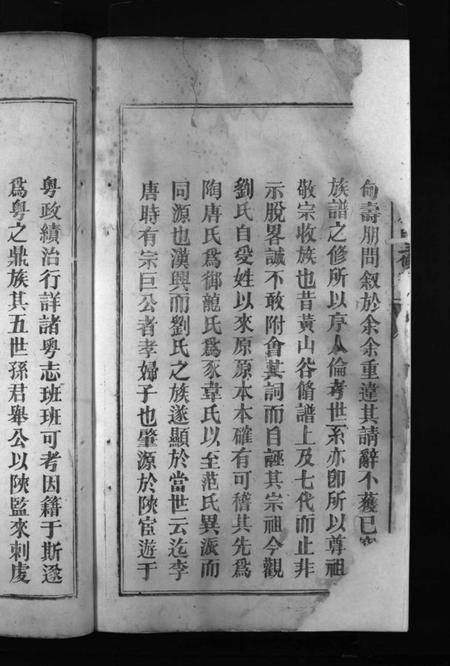 壽朋問敘於余余重違其請辭不獲已
族譜之修所以序人倫考世系亦卽所以尊祖
敬宗收族也昔黃山谷脩譜上及七代而止非
示脫畧誠不敢附會其詞而自誣其宗祖今觀
劉氏自受姓以來原原本本確有可稽其先爲
陶唐氏爲御龍氏爲豕韋氏以至范氏異派而
同源也漢興而劉氏之族遂顯於當世云迄李
唐時有宗巨公者孝婦子也肇源於陝宦遊于
粤政績治行詳諸粤志班班可考因籍于斯遂
爲粤之鼎族其五世孫君舉公以陝監來刺虔